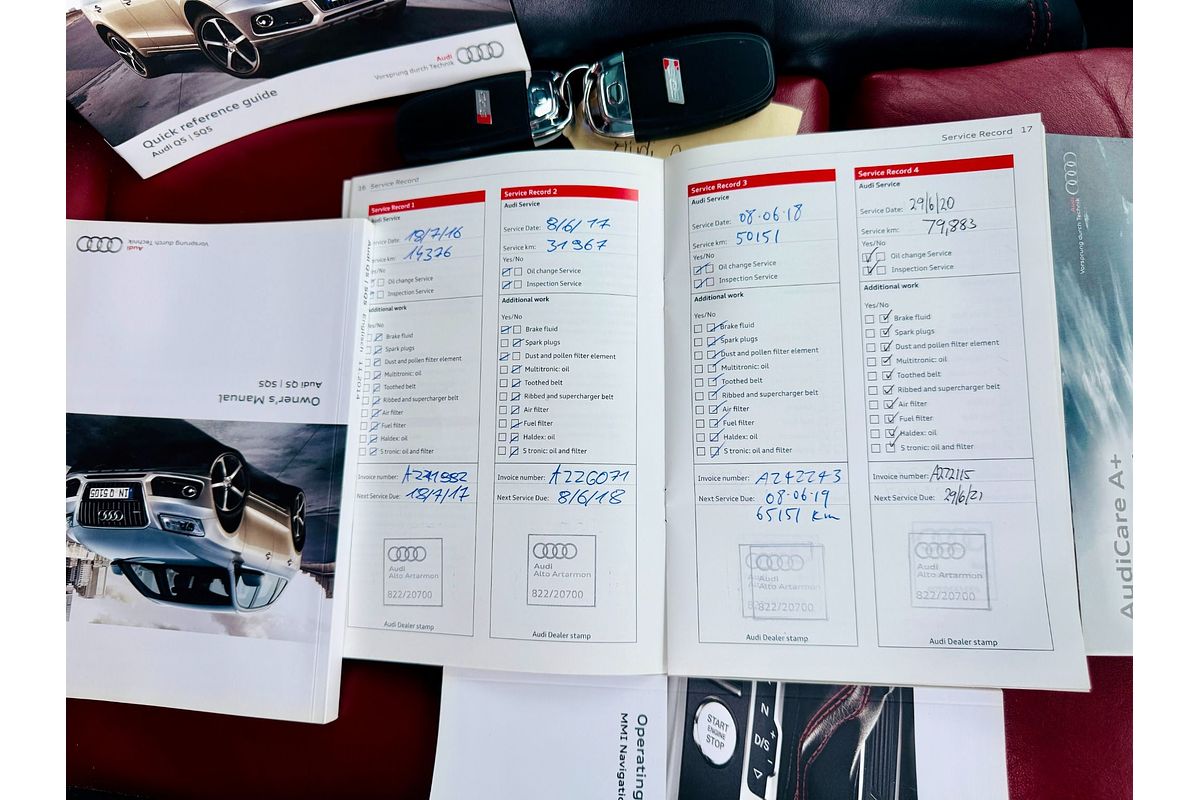 Audi
Vorsprung durch Technik
Quick reference guide
Audi Q5 | SQ5
16 Service Record
Service Record 1
Audi Service
Service Date: 18/7/16
Service km: 14376
Yes/No
Oil change Service
Inspection Service
Additional work
Yes/No
Brake fluid
Spark plugs
Dust and pollen filter element
Multitronic: oil
Toothed belt
Ribbed and supercharger belt
Air filter
Fuel filter
Haldex: oil
S tronic: oil and filter
Invoice number:
Next Service Due: 18/7/17
Audi
Alto Artarmon
822/20700
Audi Dealer stamp
Service Record 2
Audi Service
Service Date: 8/6/17
Service km: 31967
Yes/No
Oil change Service
Inspection Service
Additional work
Yes/No
Brake fluid
Spark plugs
Dust and pollen filter element
Multitronic: oil
Toothed belt
Ribbed and supercharger belt
Air filter
Fuel filter
Haldex: oil
S tronic: oil and filter
Invoice number: A226071
Next Service Due: 8/6/18
Audi
Alto Artarmon
822/20700
Audi Dealer stamp
Service Record 17
Service Record 3
Audi Service
Service Date: 08.06.18
Service km: 50151
Yes/No
Oil change Service
Inspection Service
Additional work
Yes/No
Brake fluid
Spark plugs
Dust and pollen filter element
Multitronic: oil
Toothed belt
Ribbed and supercharger belt
Air filter
Fuel filter
Haldex: oil
S tronic: oil and filter
Invoice number: A242243
Next Service Due: 08.06.19
65151 km
Audi
Alto Artarmon
822/20700
Audi Dealer stamp
Service Record 4
Audi Service
Service Date: 29/6/20
Service km: 79,883
Yes/No
Oil change Service
Inspection Service
Additional work
Yes/No
Brake fluid
Spark plugs
Dust and pollen filter element
Multitronic: oil
Toothed belt
Ribbed and supercharger belt
Air filter
Fuel filter
Haldex: oil
S tronic: oil and filter
Invoice number: A272115
Next Service Due: 29/6/21
Audi
Alto Artarmon
822/20700
Audi Dealer stamp
Audi
Vorsprung durch Technik
Owner's Manual
Audi Q5 | SQ5
IN Q 5105
Audi Q5 | SQ5 Englisch 11.2014
Audi
Vorsprung durch Technik
AudiCare A+
Operating
MMI Navigation
START
ENGINE
STOP
N
D/S
+
-